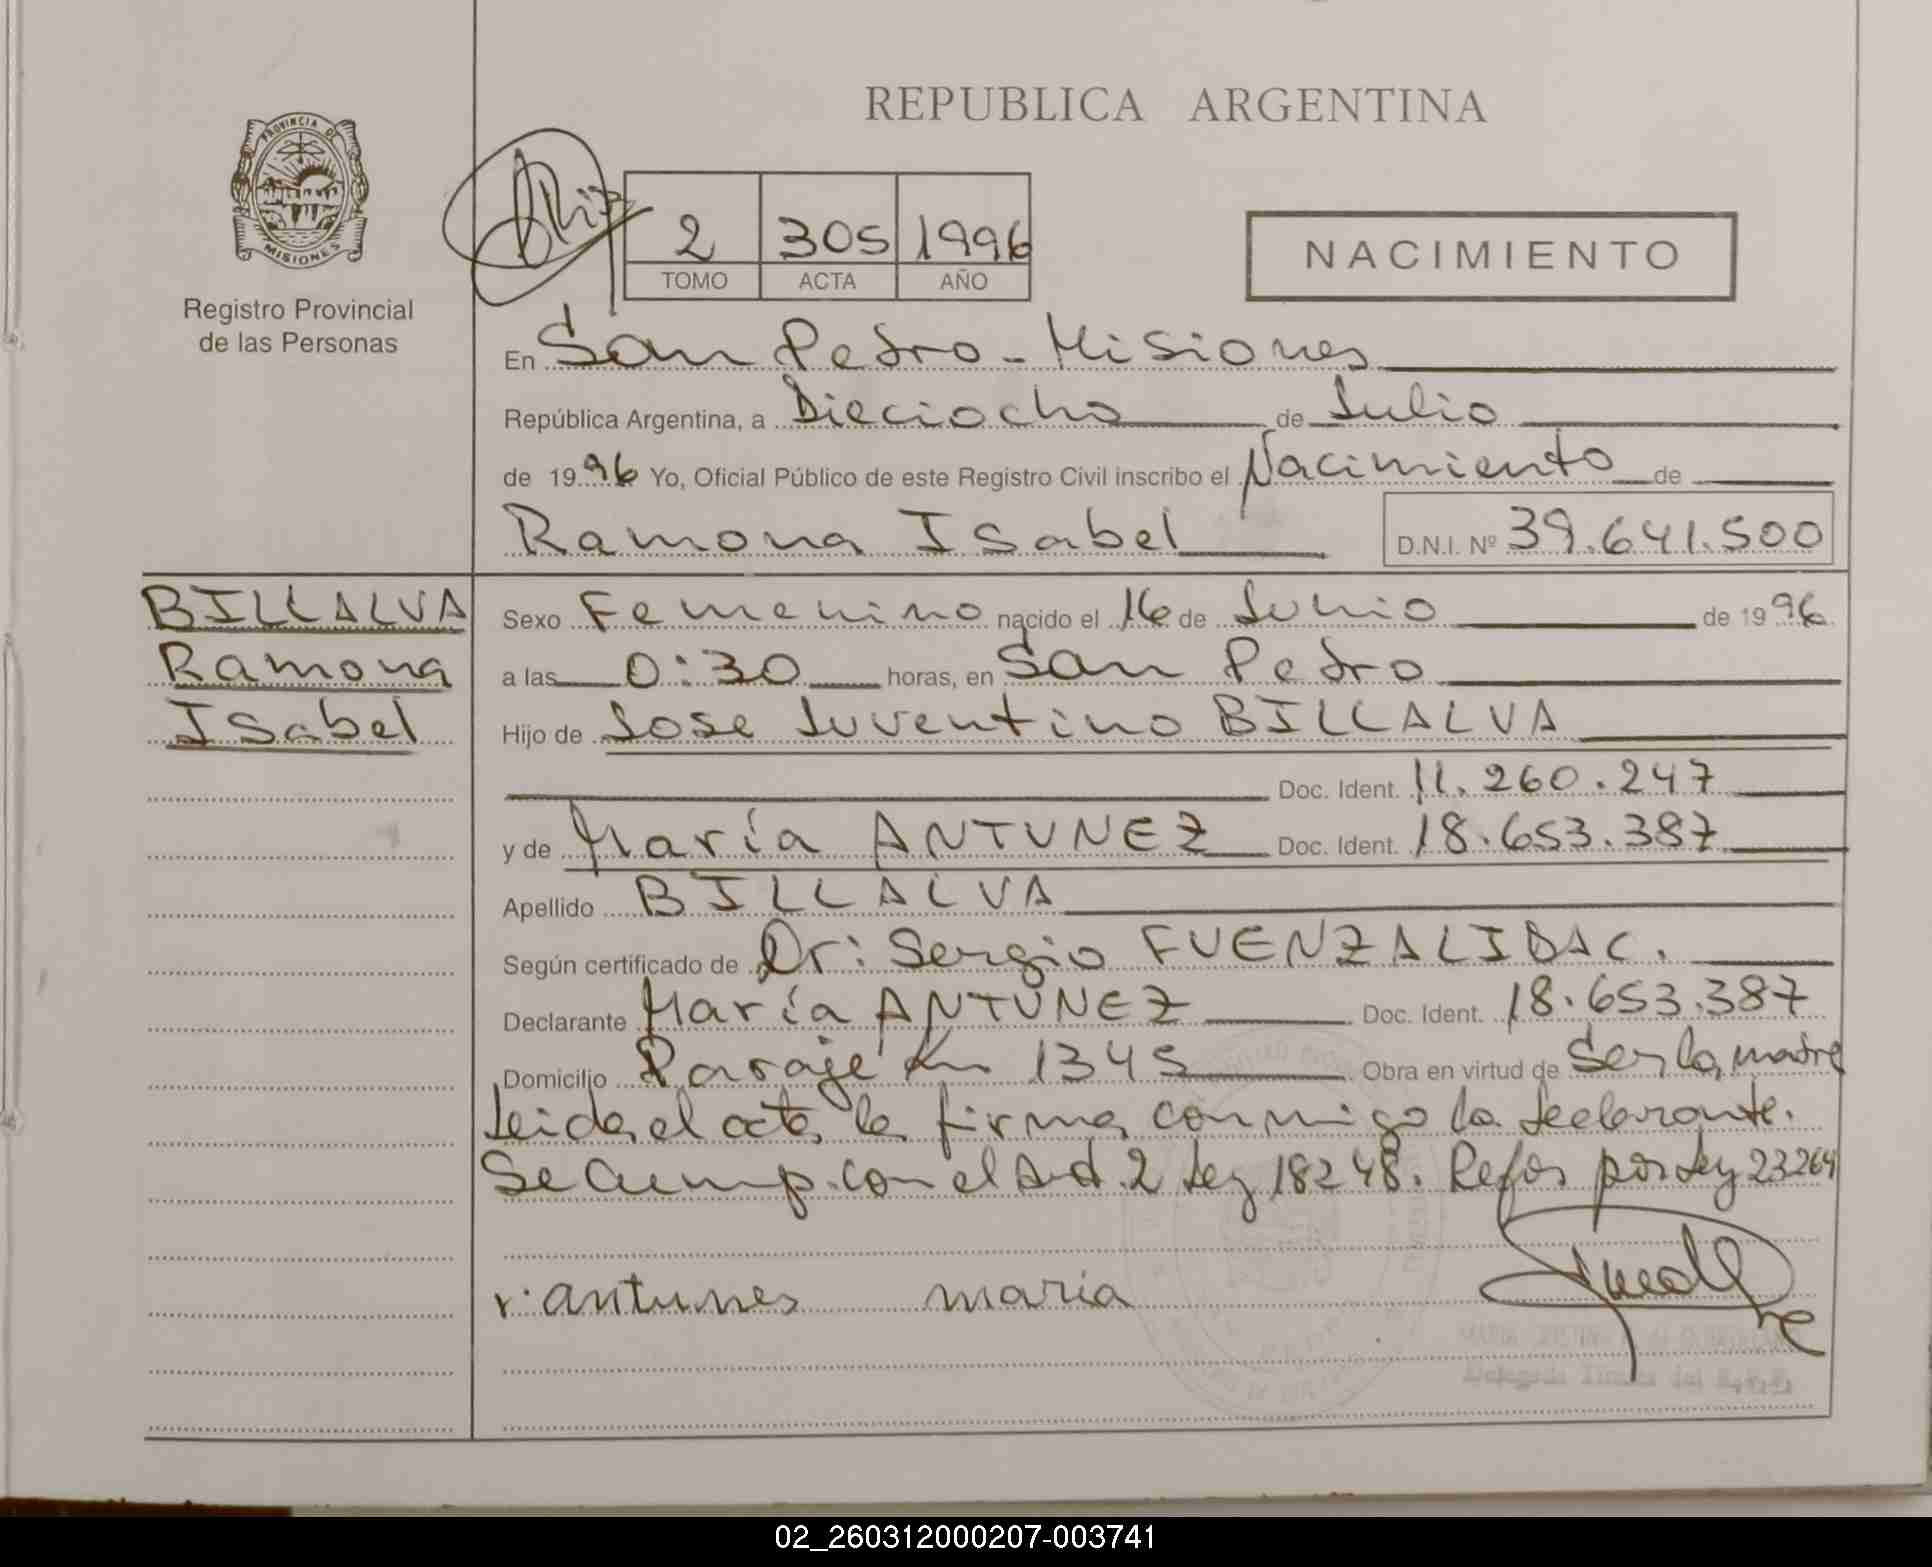 REPUBLICA ARGENTINA
PROVINCIA DE
MISIONES
Registro Provincial
de las Personas
2 305 1996
TOMO ACTA AÑO
NACIMIENTO
En San Pedro - Misiones
República Argentina, a Dieciocho de Julio
de 1996 Yo, Oficial Público de este Registro Civil inscribo el Nacimiento de
Ramona Isabel D.N.I. Nº 39.641.500
BILLALVA
Ramona
Isabel
Sexo Femenino nacido el 16 de Junio de 1996
a las 0:30 horas, en San Pedro
Hijo de Jose Juventino BILLALVA
Doc. Ident. 11.260.247
y de María ANTUNEZ Doc. Ident. 18.653.387
Apellido BILLALVA
Según certificado de Dr: Sergio FUENZALIDA C.
Declarante María ANTUNEZ Doc. Ident. 18.653.387
Domicilio Paraje Km 1345 Obra en virtud de Ser la madre
Leida el acta la firma conmigo la declarante.
Se Cump. con el Art. 2 Ley 18248. Refor por Ley 23264
antunes maria
02_260312000207-003741